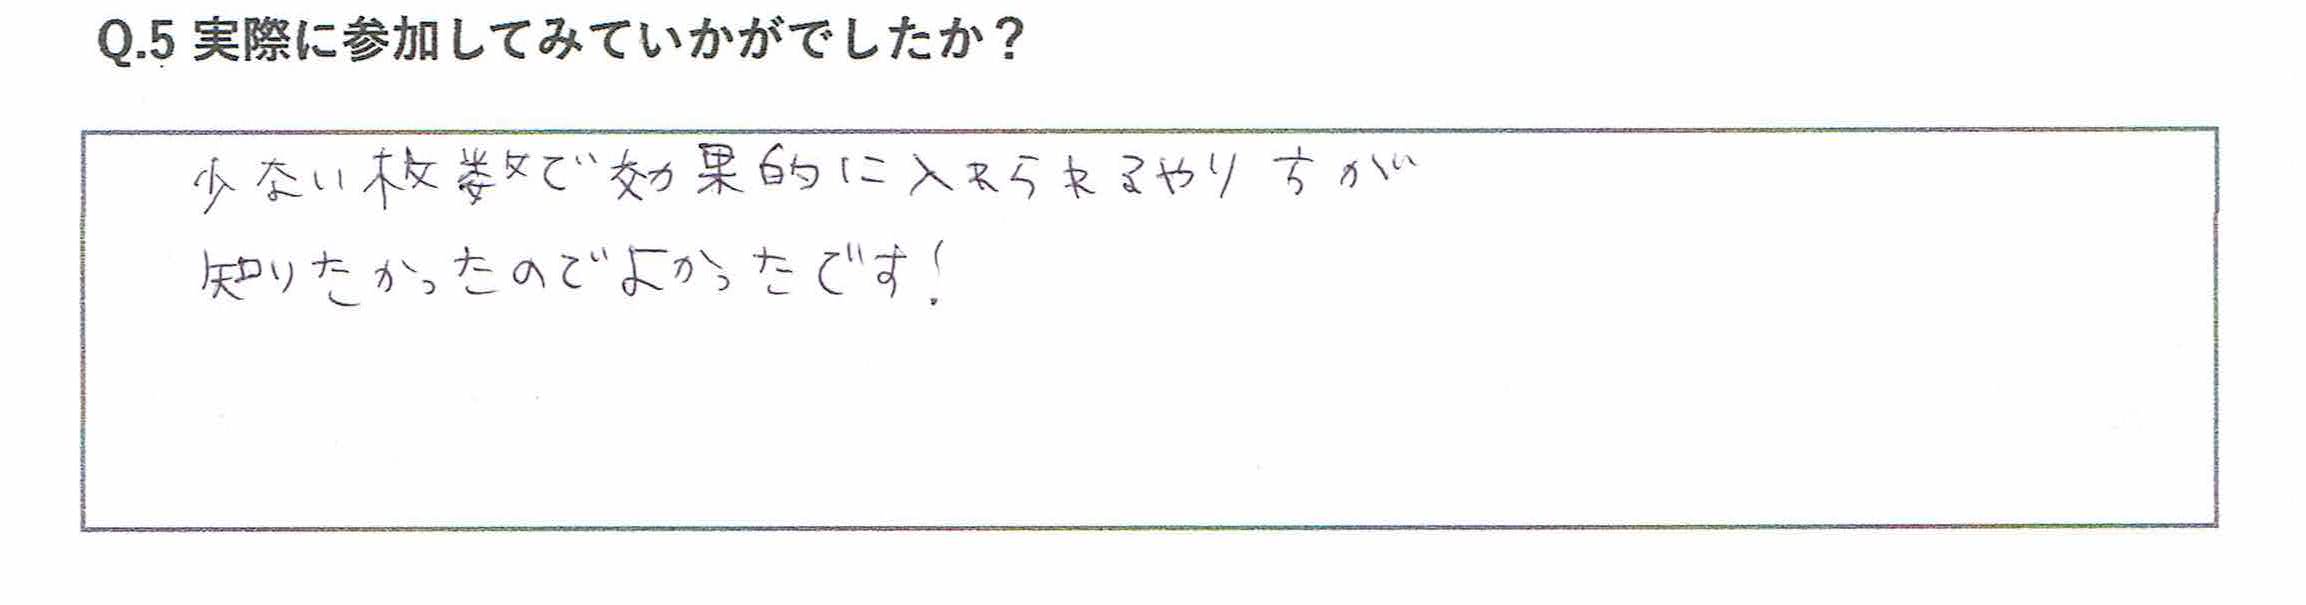 Q.5 実際に参加してみていかがでしたか？
少ない枚数で効果的に入れられるやり方が
知りたかったのでよかったです！